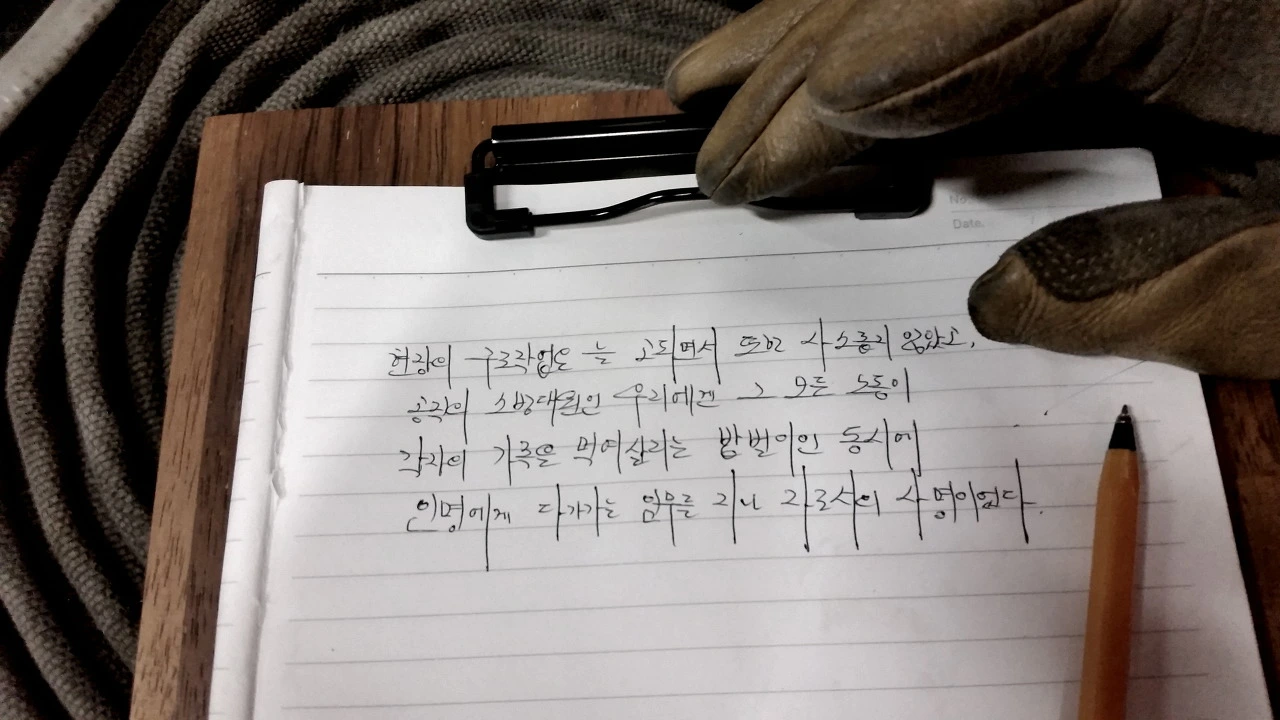 No.
Date.
현장의 구조작업은 늘 고되면서 또한 사소롭지 않았고,
공직의 소방대원인 우리에겐 그 모든 노동이
각자의 가족을 먹여살리는 밥벌이인 동시에
인명에게 다가가는 임무를 지닌 자로서의 사명이었다.